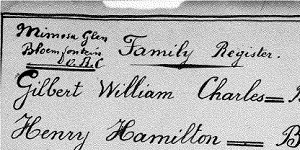 Mimosa Glen
Bloemfontein
O.R.C
Family Register.
Gilbert William Charles
Henry Hamilton